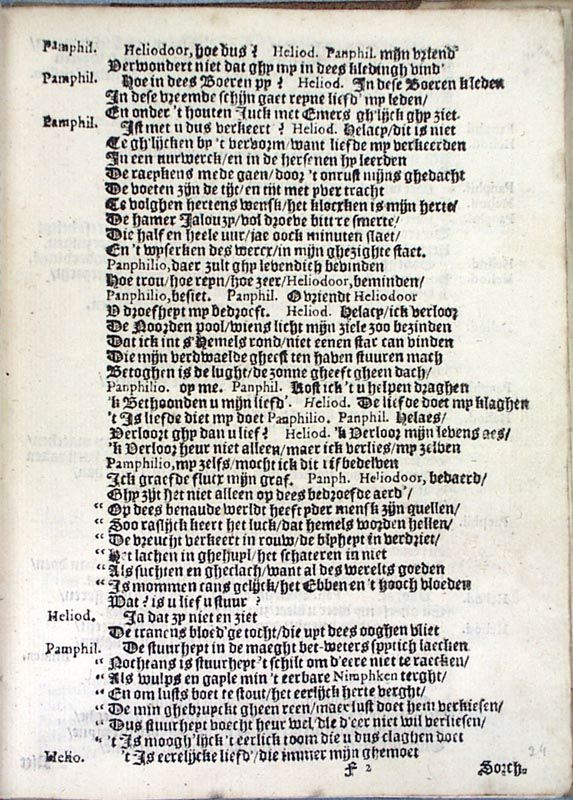 Pamphil. Heliodoor, hoe dus? Heliod. Pamphil. mijn vriend
Verwondert niet dat ghy my in dees kledingh vind'
Pamphil. Hoe in dees Boeren py? Heliod. In dese Boeren kleden
In dese vreemde schijn gaet reyne liefd' my leden/
En onder 't houten Juck met Emers gh'lijck ghy ziet.
Pamphil. Ist met u dus verkeert? Heliod. Helacy/dit is niet
Te gh'lijcken by 't vervorm/want liefde my verkeerden
In een uurwerck/en in de hersenen hy leerden
De raeykens mede gaen/door 't onrust mijns ghedacht
De voeten zijn de tijt/en tijt met yver tracht
Te volghen hertens wensk/het klocxken is mijn herte/
De hamer Jalouzy/vol droeve bittre smerte/
Die half en heele uur/jae oock minuten slaet/
En 't wyserken des wercx/in mijn ghezighte staet.
Panphilio, daer zult ghy levendich bevinden
Hoe trou/hoe reyn/hoe zeer/Heliodoor, beminden/
Panphilio, besiet. Panphil. O vriendt Heliodoor
U droefheyt my bedroeft. Heliod. Helacy/ick verloor
De Noorden pool/wiens licht mijn ziele zoo bezinden
Dat ick int s'Hemels rond/niet eenen star can vinden
Die mijn verdwaelde gheest ten haven stuuren mach
Betoghen is de lught/de zonne gheeft gheen dach/
Panphilio. op me. Panphil. Kost ick 't u helpen draghen
'k Bethoonden u mijn liefd'. Heliod. De liefde doet my klaghen
't Is liefde diet my doet Panphilio. Panphil. Helaes/
Verloort ghy dan u lief? Heliod. 'k Verloor mijn levens aes/
'k Verloor heur niet alleen/maer ick verlies/my zelven
Pamphilio, my zelfs/mocht ick dit lijf bedelven
Ick graefde flucx mijn graf. Panph. Heliodoor, bedaerd/
Ghy zijt het niet alleen op dees bedroefde aerd'/
“ Op dees benaude werldt heeft yder mensk zijn quellen/
“ Soo raslijck keert het luck/dat hemels worden hellen/
“ De vreucht verkeert in rouw/de blyheyt in verdriet/
“ Het lachen in ghehuyl/het schateren in niet
“ Als suchten en gheclach/want al des werelts goeden
“ Is mommen cans gelijck/het Ebben en 't hooch vloeden
Wat? is u lief u stuur?
Heliod. Ja dat zy niet en ziet
De tranens bloed'ge tocht/die uyt dees ooghen vliet
Pamphil. De stuurheyt in de maeght bet-weters spytich laecken
“ Nochtans is stuurheyt 't schilt om d'eere niet te raecken/
“ Als wulps en gayle min 't eerbare Nimphken terght/
“ En om lusts boet te stout/het eerlijck herte verght/
“ De min ghebruyckt gheen reen/maer lust doet hem verkiesen/
“ Dus stuurheyt voecht heur wel/die d'eer niet wil verliesen/
“ 't Is moogh'lijck 't eerlick toom die u dus claghen doet
Helio. 't Is eerelijcke liefd'/die immer mijn ghemoet
F 2
Sorch-
24